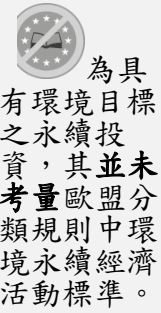 為具
有環境目標
之永續投
資，其並未
考量歐盟分
類規則中環
境永續經濟
活動標準。